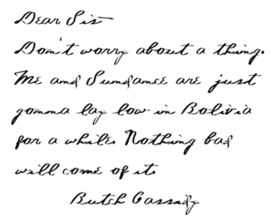 Dear Sis
Don't worry about a thing.
Me and Sundance are just
gonna lay low in Bolivia
for a while. Nothing bad
will come of it.
Butch Cassidy